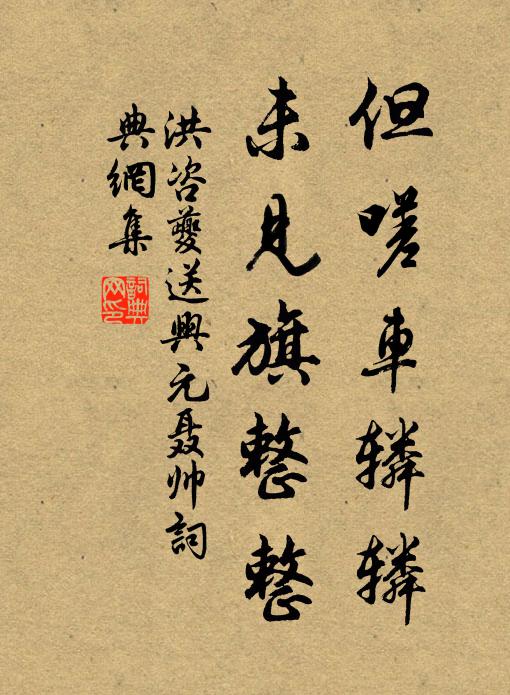 但嗟車辚辚
未見旗整整
洪咨夔送興元聂帅詞
典網集
詞典
网印